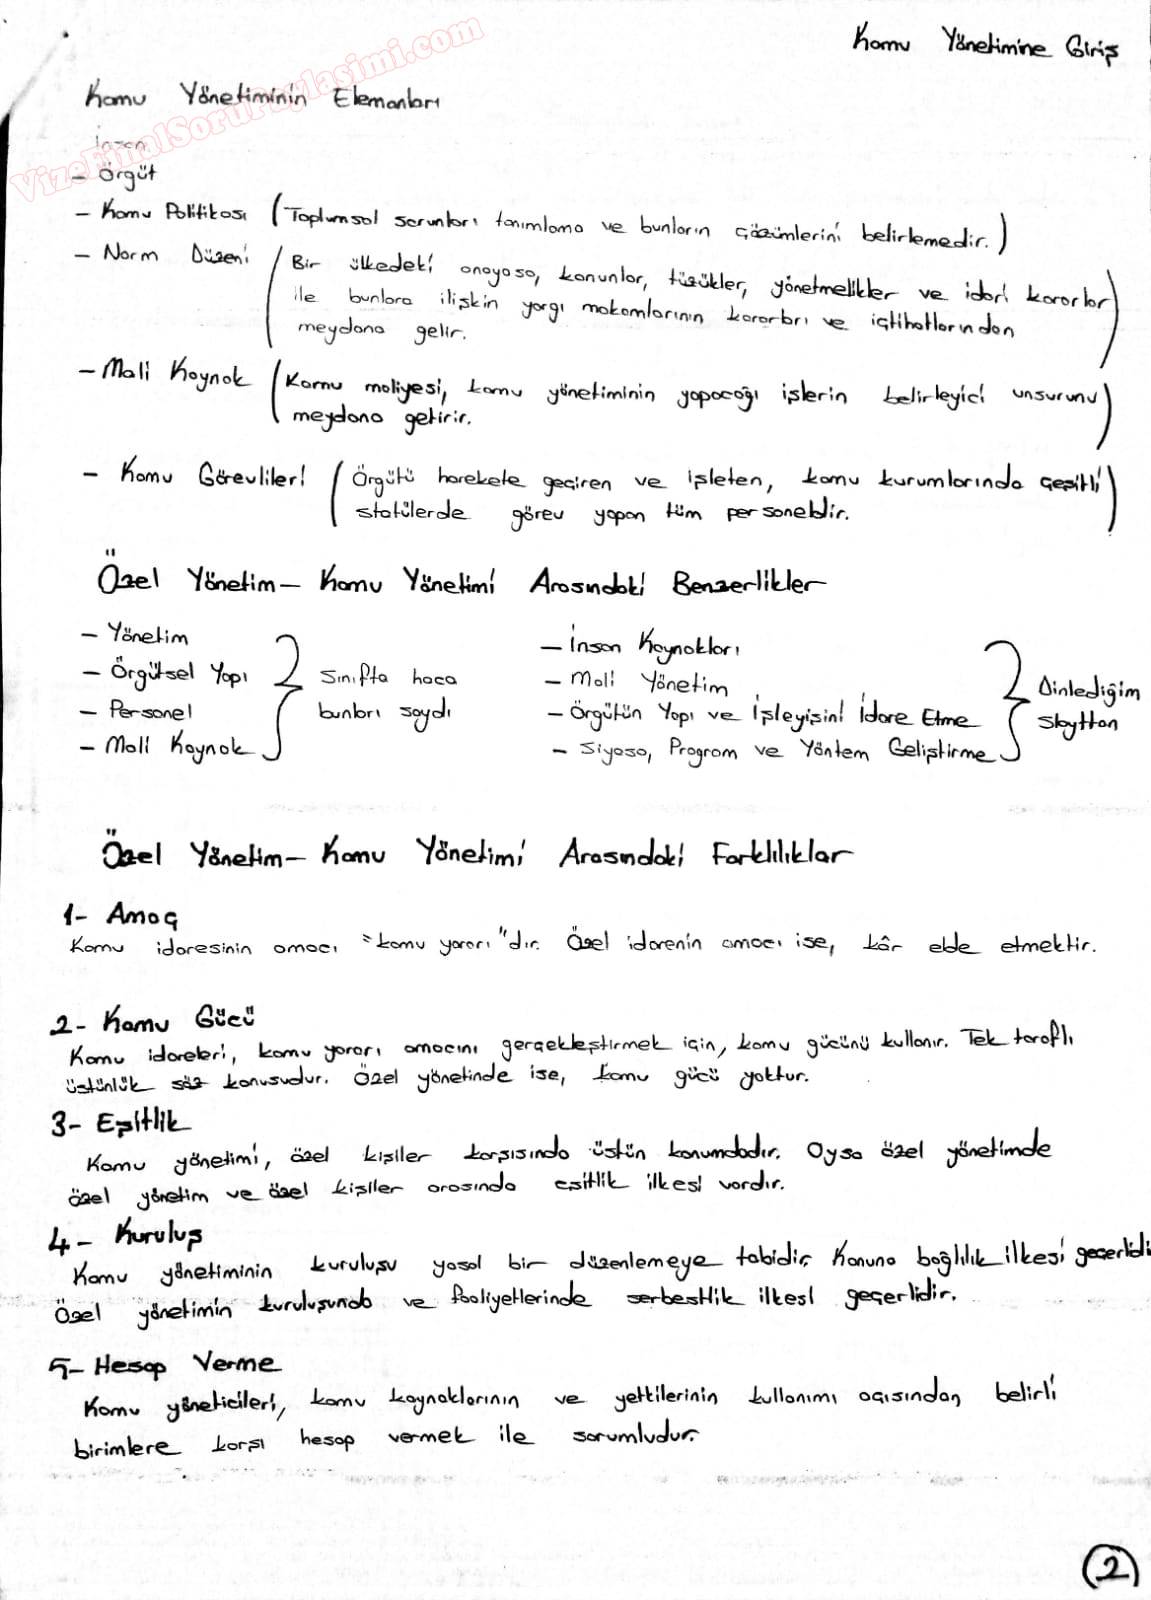 Kamu Yönetimine Giriş
VizeFinalSoruPaylasimi.com
Kamu Yönetiminin Elemanları
İnsan
- Örgüt
- Kamu Politikası (Toplumsal sorunları tanımlama ve bunların çözümlerini belirlemedir.)
- Norm Düzeni (Bir ülkedeki anayasa, kanunlar, tüzükler, yönetmelikler ve idari kararlar
ile bunlara ilişkin yargı makamlarının kararları ve içtihatlarından
meydana gelir.)
- Mali Kaynak (Kamu maliyesi, kamu yönetiminin yapacağı işlerin belirleyici unsurunu
meydana getirir.)
- Kamu Görevlileri (Örgütü harekete geçiren ve işleten, kamu kurumlarında çeşitli
statülerde görev yapan tüm personeldir.)
Özel Yönetim - Kamu Yönetimi Arasındaki Benzerlikler
- Yönetim
- Örgütsel Yapı
- Personel
- Mali Kaynak
Sınıfta hoca
bunları saydı
- İnsan Kaynakları
- Mali Yönetim
- Örgütün Yapı ve İşleyişini İdare Etme
- Siyasa, Program ve Yöntem Geliştirme
Dinlediğim
slayttan
Özel Yönetim - Kamu Yönetimi Arasındaki Farklılıklar
1- Amaç
Kamu idaresinin amacı "kamu yararı"dır. Özel idarenin amacı ise, kâr elde etmektir.
2- Kamu Gücü
Kamu idareleri, kamu yararı amacını gerçekleştirmek için, kamu gücünü kullanır. Tek taraflı
üstünlük söz konusudur. Özel yönetinde ise, kamu gücü yoktur.
3- Eşitlik
Kamu yönetimi, özel kişiler karşısında üstün konumdadır. Oysa özel yönetimde
özel yönetim ve özel kişiler arasında eşitlik ilkesi vardır.
4- Kuruluş
Kamu yönetiminin kuruluşu yasal bir düzenlemeye tabidir. Kanuna bağlılık ilkesi geçerlidi
Özel yönetimin kuruluşunda ve faaliyetlerinde serbestlik ilkesi geçerlidir.
5- Hesap Verme
Kamu yöneticileri, kamu kaynaklarının ve yetkilerinin kullanımı açısından, belirli
birimlere karşı hesap vermek ile sorumludur.
2